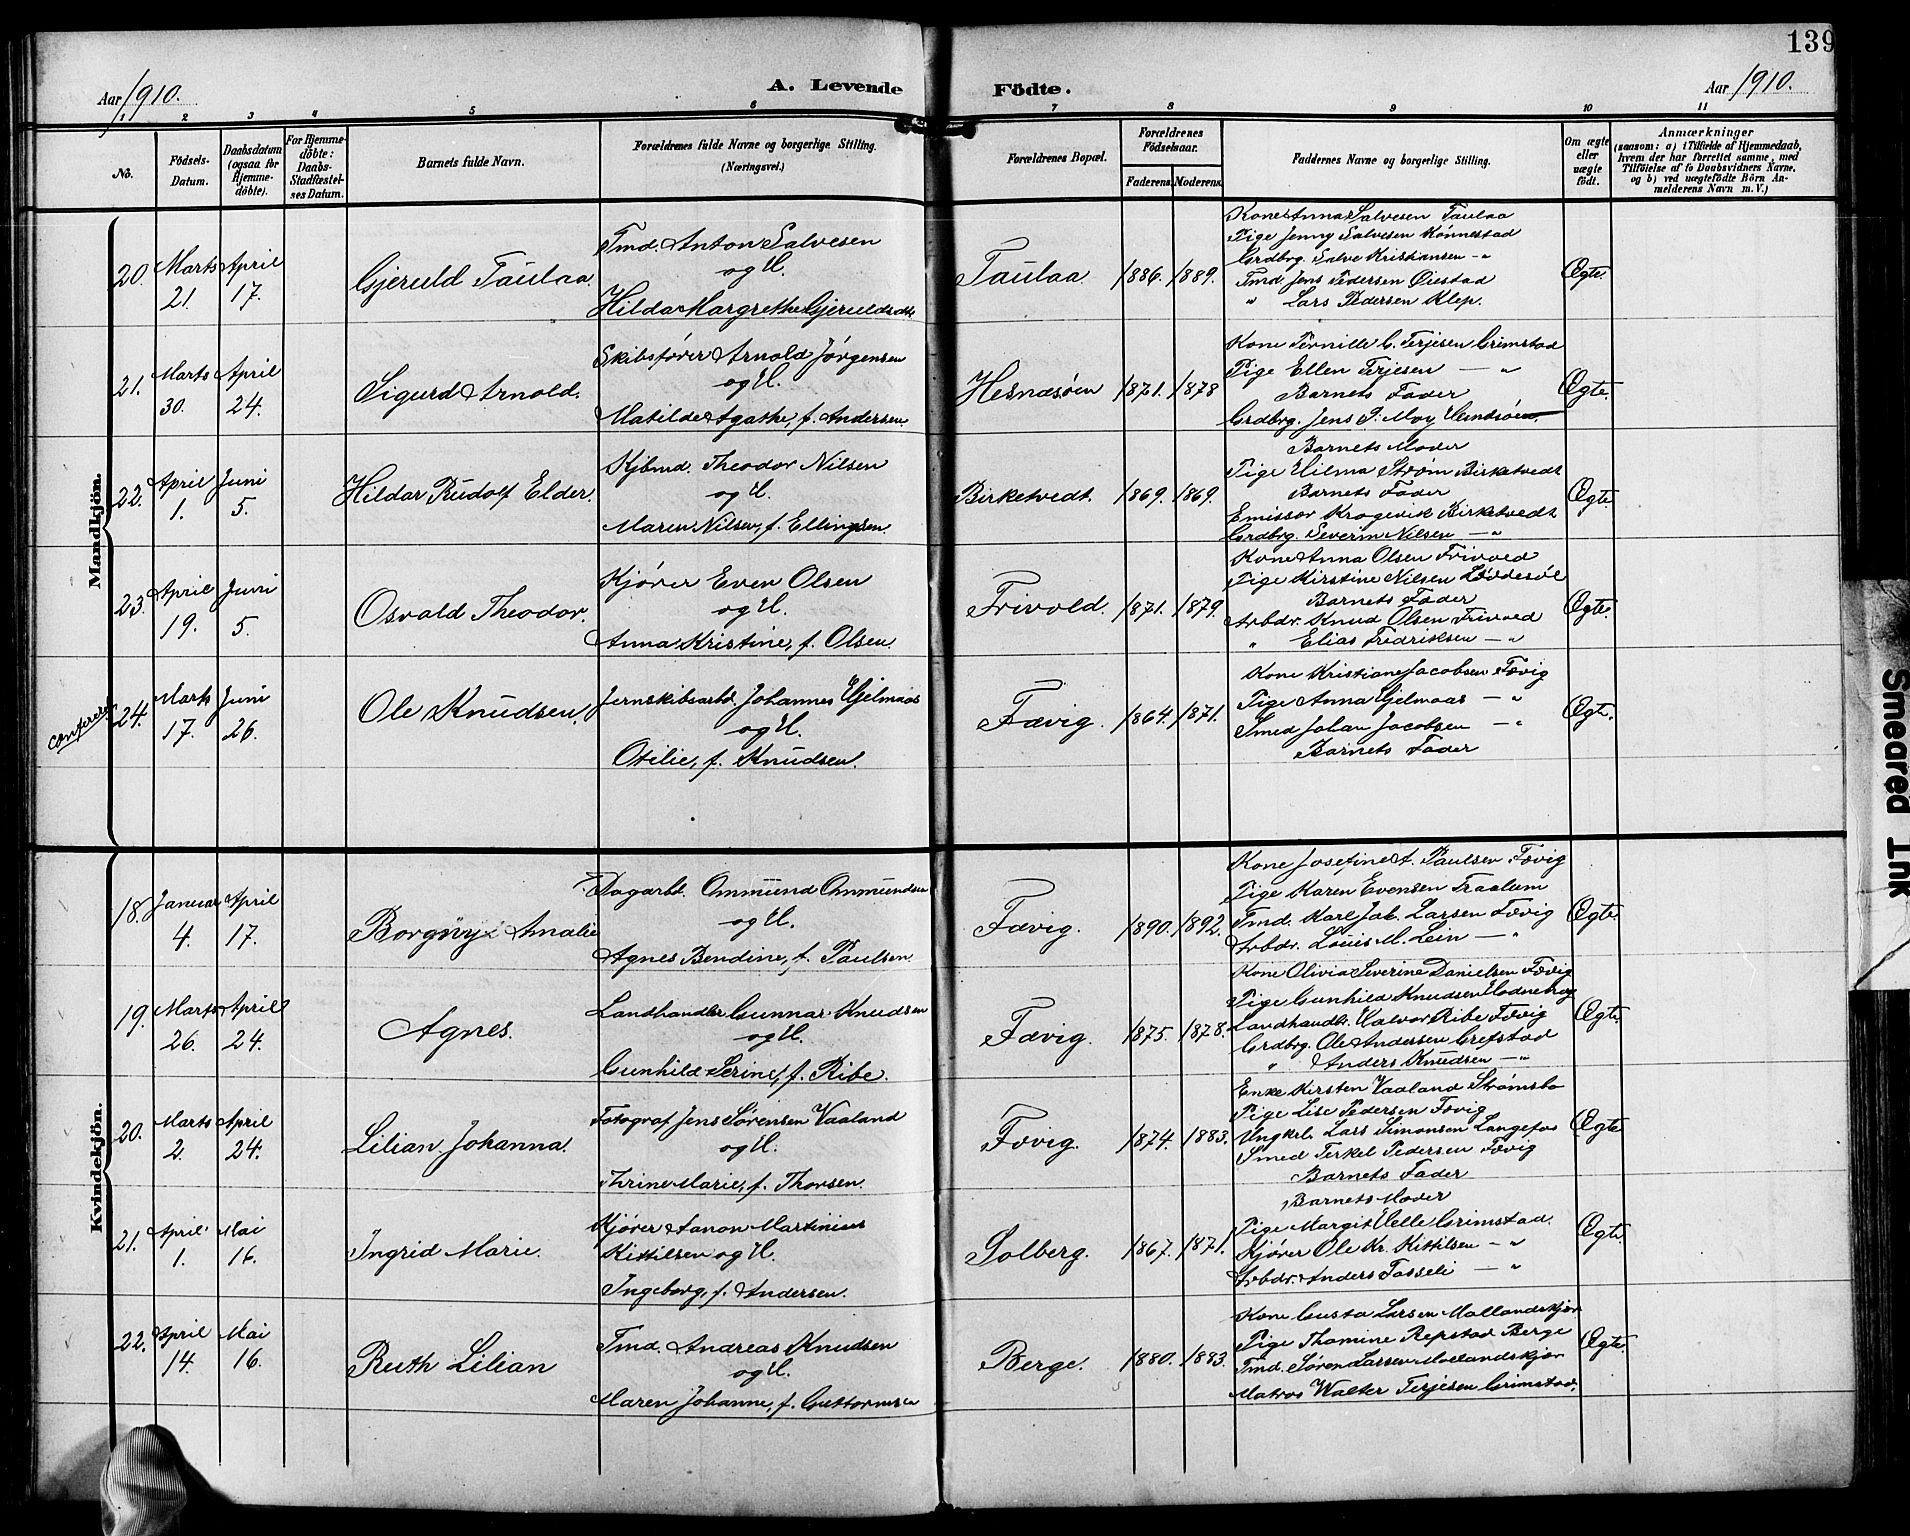 139
Aar 1910.
A. Levende Födte.
Aar 1910.
1 2 3 4 5 6 7 8 9 10 11
No.
Födsels-Datum.
Daabsdatum (ogsaa for Hjemmedöbte).
For Hjemmedöbte: Daabs-Stadfæstelses Datum.
Barnets fulde Navn.
Forældrenes fulde Navne og borgerlige Stilling.
(Næringsvei.)
Forældrenes Bopæl.
Forældrenes Födselsaar.
Faderens. Moderens.
Faddernes Navne og borgerlige Stilling.
Om ægte eller uægte födt.
Anmærkninger
(saasom: a) i Tilfælde af Hjemmedaab,
hvem der har forrettet samme, med
Tilföielse af to Daabsvidners Navne,
og b) ved uægtefödte Börn An-
melderens Navn m. V.)
Mandkjön.
20. Marts 21. April 17.
Gjeruld Taulaa.
Tmd. Anton Salvesen
og H.
Hilda Margrethe Gjeruldsdtr
Taulaa. 1886. 1889.
Kone Anna Salvesen Taulaa
Pige Jenny Salvesen Rønnestad
Grdbrg. Salve Kristiansen - "
Tmd. Jens Pedersen Øiestad
" Lars Pedersen Klep.
Ægte.
21. Marts 30. April 24.
Sigurd Arnold.
Skibsfører Arnold Jørgensen
og H.
Matilde Agathe, f. Andersen.
Hesnæsøen 1871. 1878
Kone Pernille C. Terjesen Grimstad
Pige Ellen Terjesen - "
Barnets Fader
Grdbrg. Jens P. Moy Hundsøen.
Ægte.
22. April 1. Juni 5.
Hildar Rudolf Elder.
Kjbmd. Theodor Nilsen
og H.
Maren Nilsen, f. Ellingsen.
Birketvedt. 1869. 1869.
Barnets Moder
Pige Hilma Strøm Birketvedt
Barnets Fader
Emissær Krogevik Birketvedt
Grdbrg. Severin Nilsen - "
Ægte.
23. April 19. Juni 5.
Osvald Theodor.
Kjører Even Olsen
og H.
Anna Kristine, f. Olsen.
Frivold. 1871. 1879.
Kone Anna Olsen Frivold
Pige Kirstine Nilsen Løddesøl
Barnets Fader
Arbdr. Knud Olsen Frivold
" Elias Fredriksen - "
Ægte.
24. Marts 17. Juni 26.
Ole Knudsen.
Jernskibsarbd. Johannes Hjelmaas
og H.
Otilie, f. Knudsen.
Fævig. 1864. 1871.
Kone Kristiane Jacobsen Fævig
Pige Anna Hjelmaas - "
Smed Johan Jacobsen - "
Barnets Fader
Ægte.
Kvindekjön.
18. Januar 4. April 17.
Borgny Amalie
Dagarbd. Ommund Ommundsen
og H.
Agnes Bendine, f. Paulsen.
Fævig. 1890. 1892.
Kone Josefine A. Paulsen Fævig
Pige Karen Evensen Traalum
Tmd. Karl Jak. Larsen Fævig
Arbdr. Louis M. Lein - "
Ægte.
19. Marts 26. April 24.
Agnes.
Landhandler Gunnar Knudsen
og H.
Gunhild Serine, f. Ribe.
Fævig. 1875. 1878.
Kone Olivia Severine Danielsen Fævig
Pige Gunhild Knudsen Hodnebrog
Landhandlr. Halvor Ribe Fævig
Grdbrg. Ole Andersen Grefstad
" Anders Knudsen - "
Ægte.
20. Marts 2. April 24.
Lilian Johanna.
Fotograf Jens Sørensen Vaaland
og H.
Thrine Marie, f. Thorsen.
Fævig. 1874. 1883.
Enke Kirsten Vaaland Strømsbo
Pige Lise Pedersen Fævig
Ungkrl. Lars Simonsen Langefos
Smed Terkel Pedersen Fævig
Barnets Fader
Ægte
21. April 1. Mai 16.
Ingrid Marie.
Kjører Aanon Martinius
Kittilsen og H.
Ingeborg, f. Andersen.
Solberg. 1867. 1871.
Barnets Moder
Pige Margit Helle Grimstad.
Kjører Ole Kr. Kittilsen - "
Arbdr. Anders Fosseli - "
Ægte.
22. April 14. Mai 16.
Ruth Lilian
Tmd. Andreas Knudsen
og H.
Maren Johanne, f. Guttormsen
Berge. 1880. 1883.
Kone Gusta Larsen Mollandskjær
Pige Thomine Repstad Berge
Tmd. Søren Larsen Moelandskjær
Matros Walter Terjesen Grimstad.
Ægte.
Smeared Ink